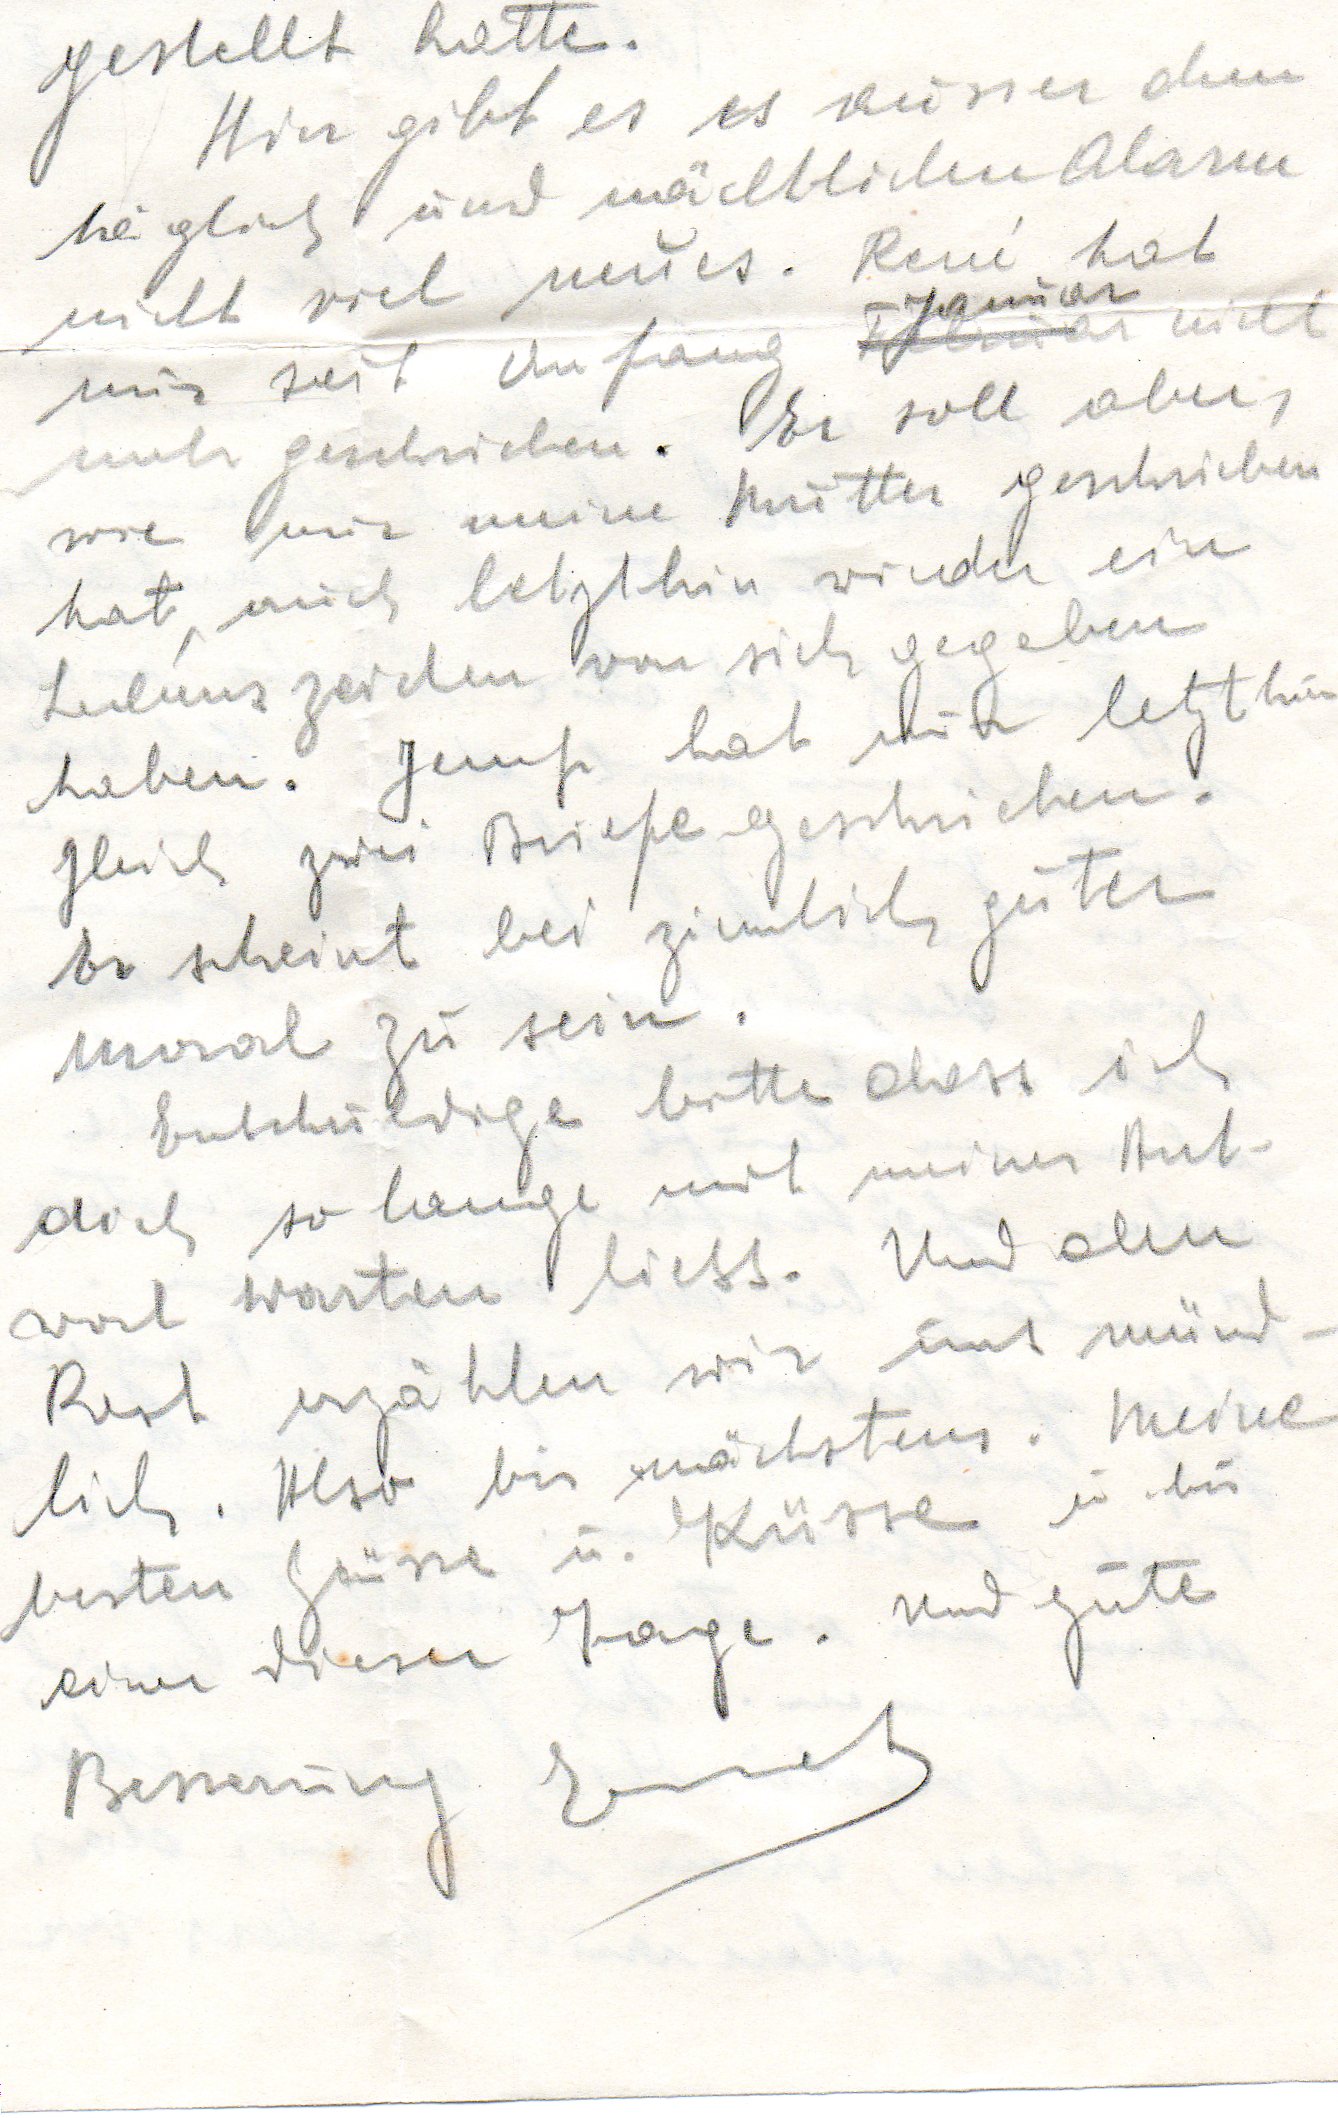 gestellt hatte.
Hier gibt es es ausser dem
täglich und nächtlichen Alarm
nicht viel neues. René hat
mir seit Anfang Januar nicht
mehr geschrieben. Er soll aber,
wie mir meine Mutter geschrieben
hat, auch letzthin wieder ein
Lebenszeichen von sich gegeben
haben. Jemp hat mir letzthin
gleich zwei Briefe geschrieben.
Er scheint bei ziemlich guter
Moral zu sein.
Entschuldige bitte dass ich
dich so lange mit meiner Ant-
wort warten liess. Und den
Rest erzählen wir uns münd-
lich. Also bis nächstens. Meine
besten Grüsse u. Küsse u bis
einer dieser Tage. Und gute
Besserung Ernest